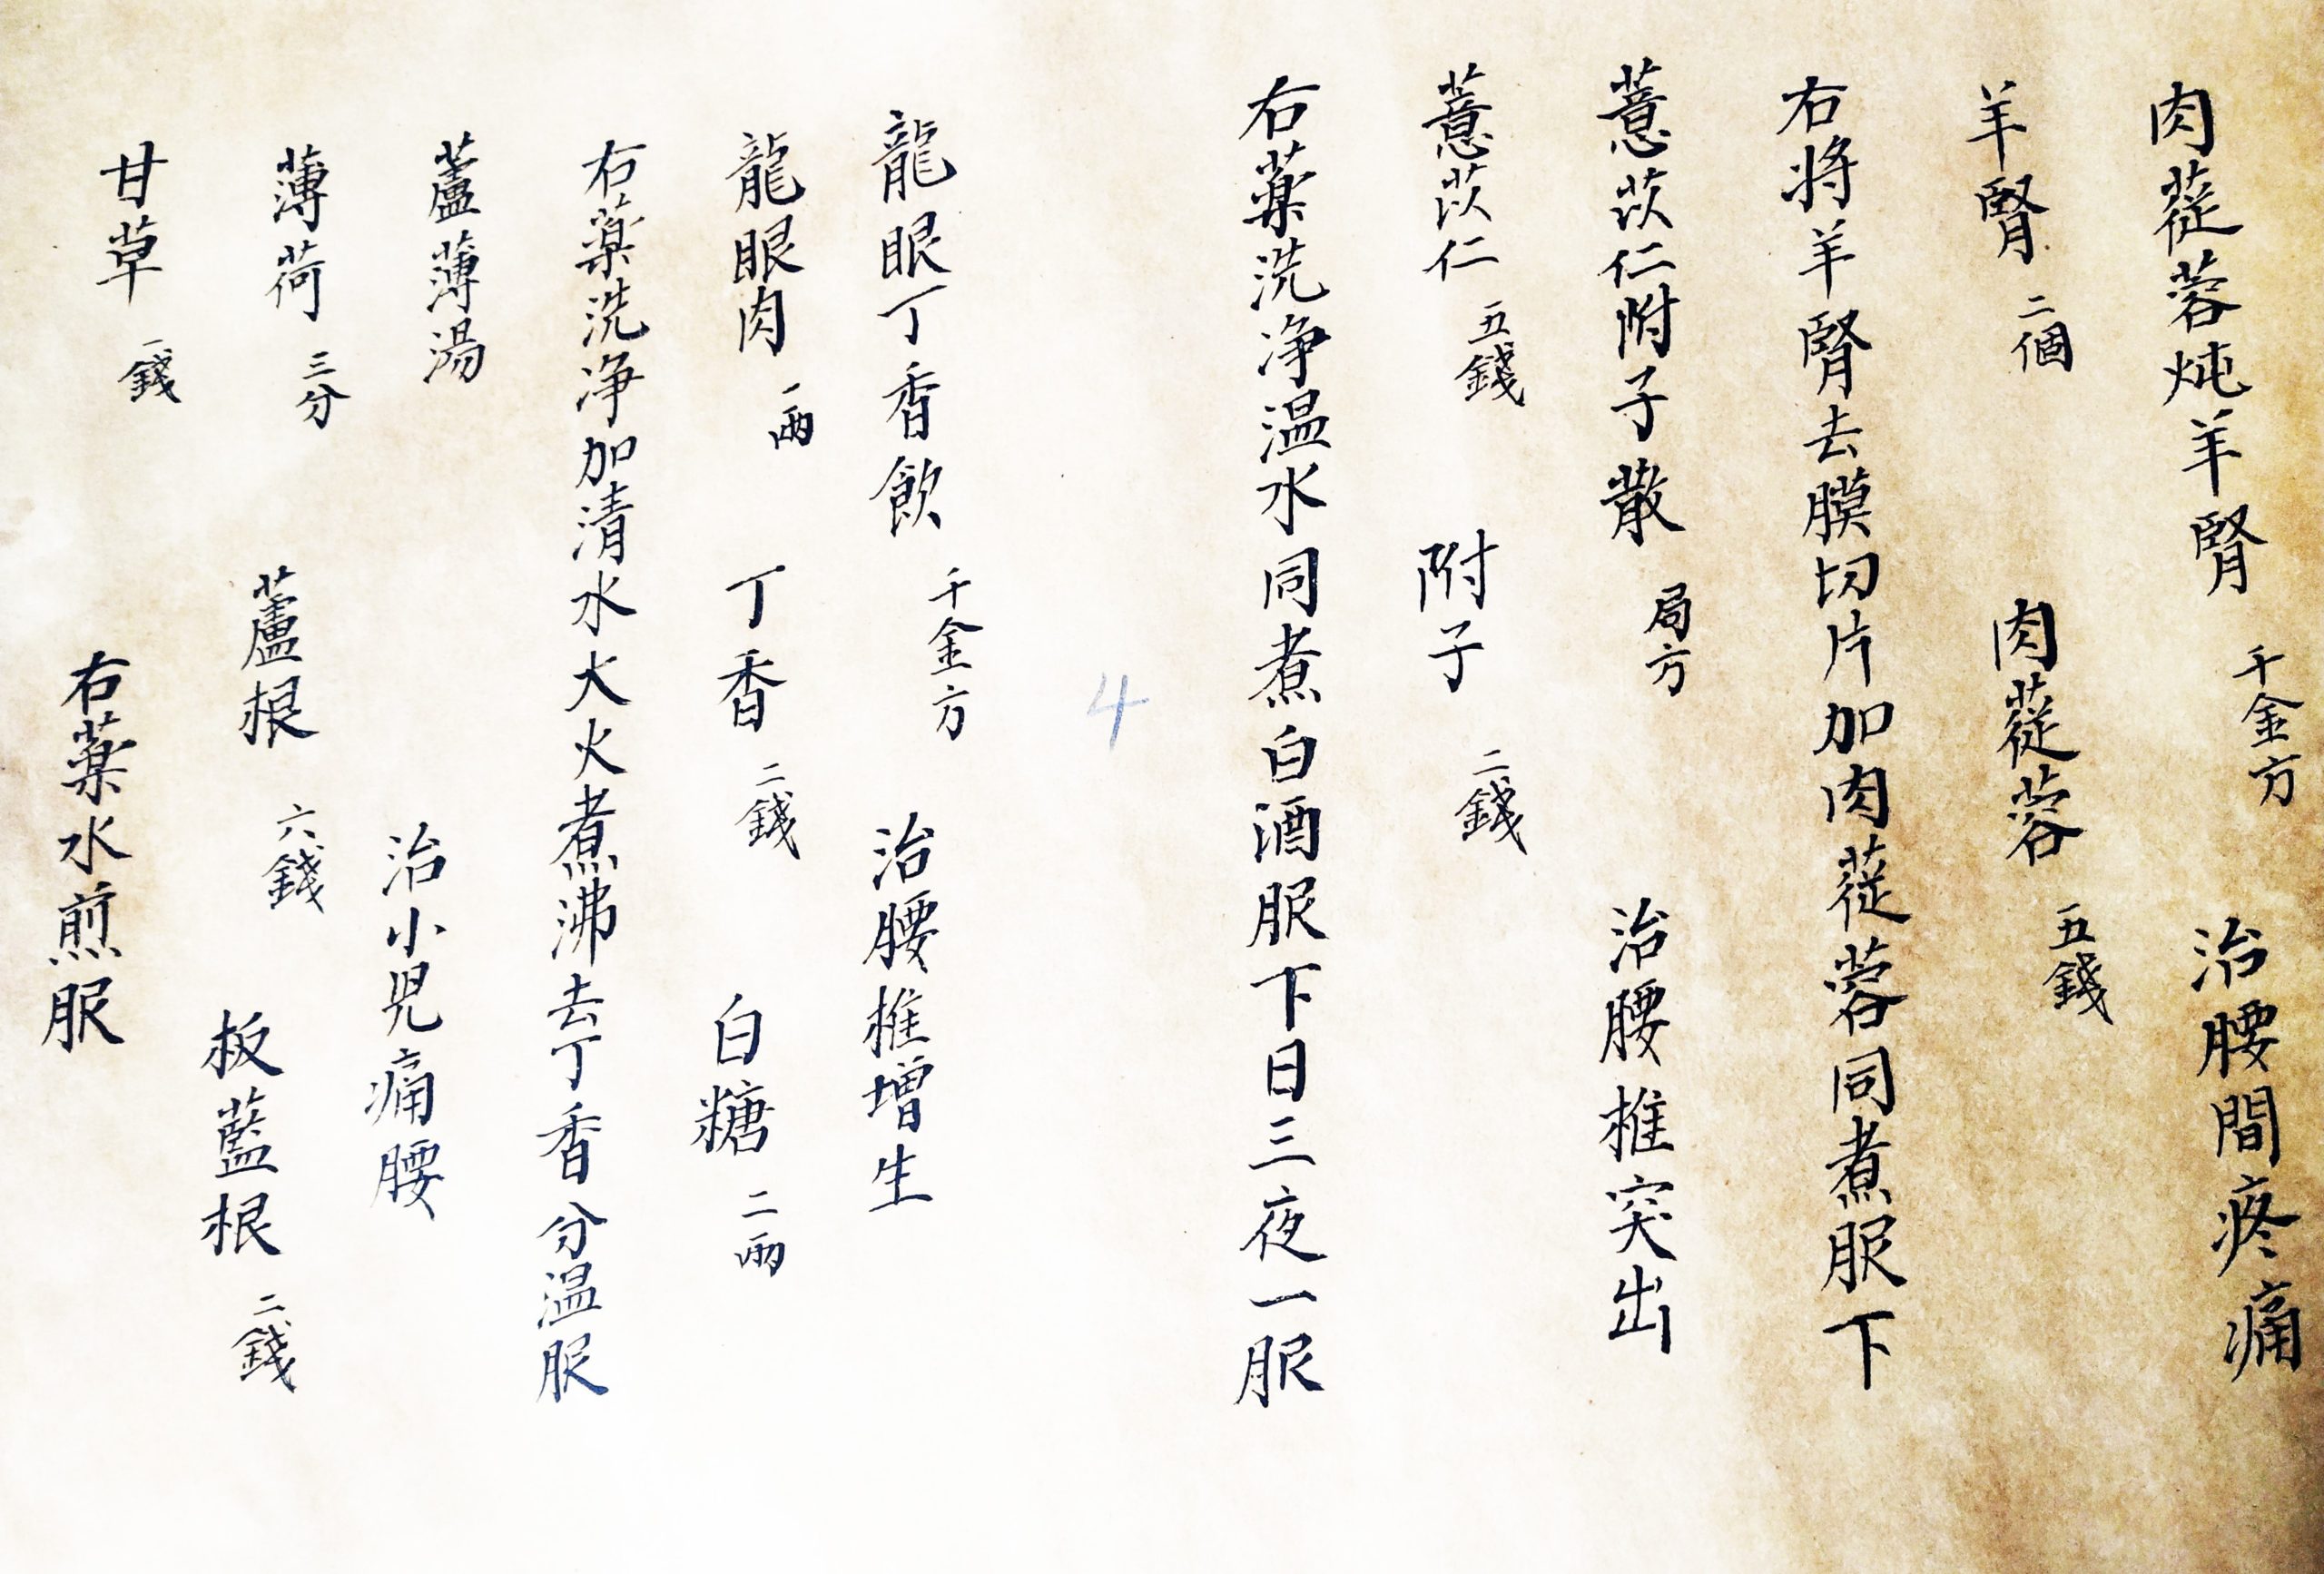 肉蓯蓉炖羊腎 千金方 治腰間疼痛
羊腎 二個 肉蓯蓉 五錢
右將羊腎去膜切片加肉蓯蓉同煮服下
薏苡仁附子散 局方 治腰椎突出
薏苡仁 五錢 附子 二錢
右藥洗净温水同煮白酒服下日三夜一服
4
龍眼丁香飲 千金方 治腰椎增生
龍眼肉 一兩 丁香 二錢 白糖 二兩
右藥洗净加清水大火煮沸去丁香分温服
蘆薄湯 治小児痛腰
薄荷 三分 蘆根 六錢 板藍根 二錢
甘草 一錢 右藥水煎服